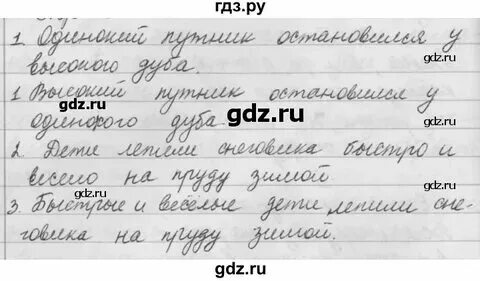 гдз.ру
1. Одинокий путник остановился у
высокого дуба.
gdz.ru
1 Высокий путник остановился у
одинокого дуба
gdz.ru
2. Дети лепили снеговика быстро и
весело на пруду зимой.
gdz.ru
3. Быстрые и весёлые дети лепили сне-
говика на пруду зимой.
gdz.ru
gdz.ru